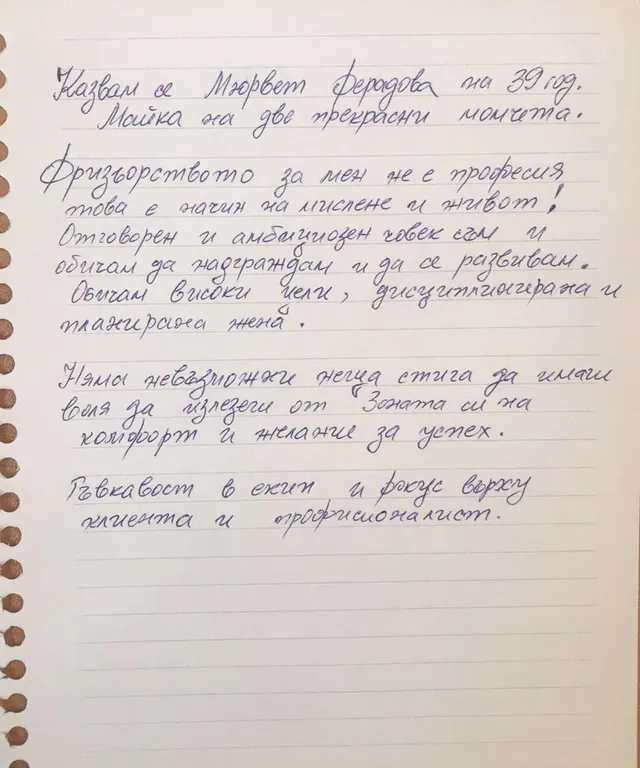 Казвам се Мюрвет Ферадова на 39 год.
Майка на две прекрасни момчета.
Фризьорството за мен не е професия
това е начин на мислене и живот!
Отговорен и амбициозен човек съм и
обичам да надграждам и да се развивам.
Обичам високи цели, дисциплинирана и
планирана жена.
Няма невъзможни неща стига да имаш
воля да излезеш от "Зоната си на
комфорт и желание за успех.
Гъвкавост в екип и фокус върху
клиента и професионалист.